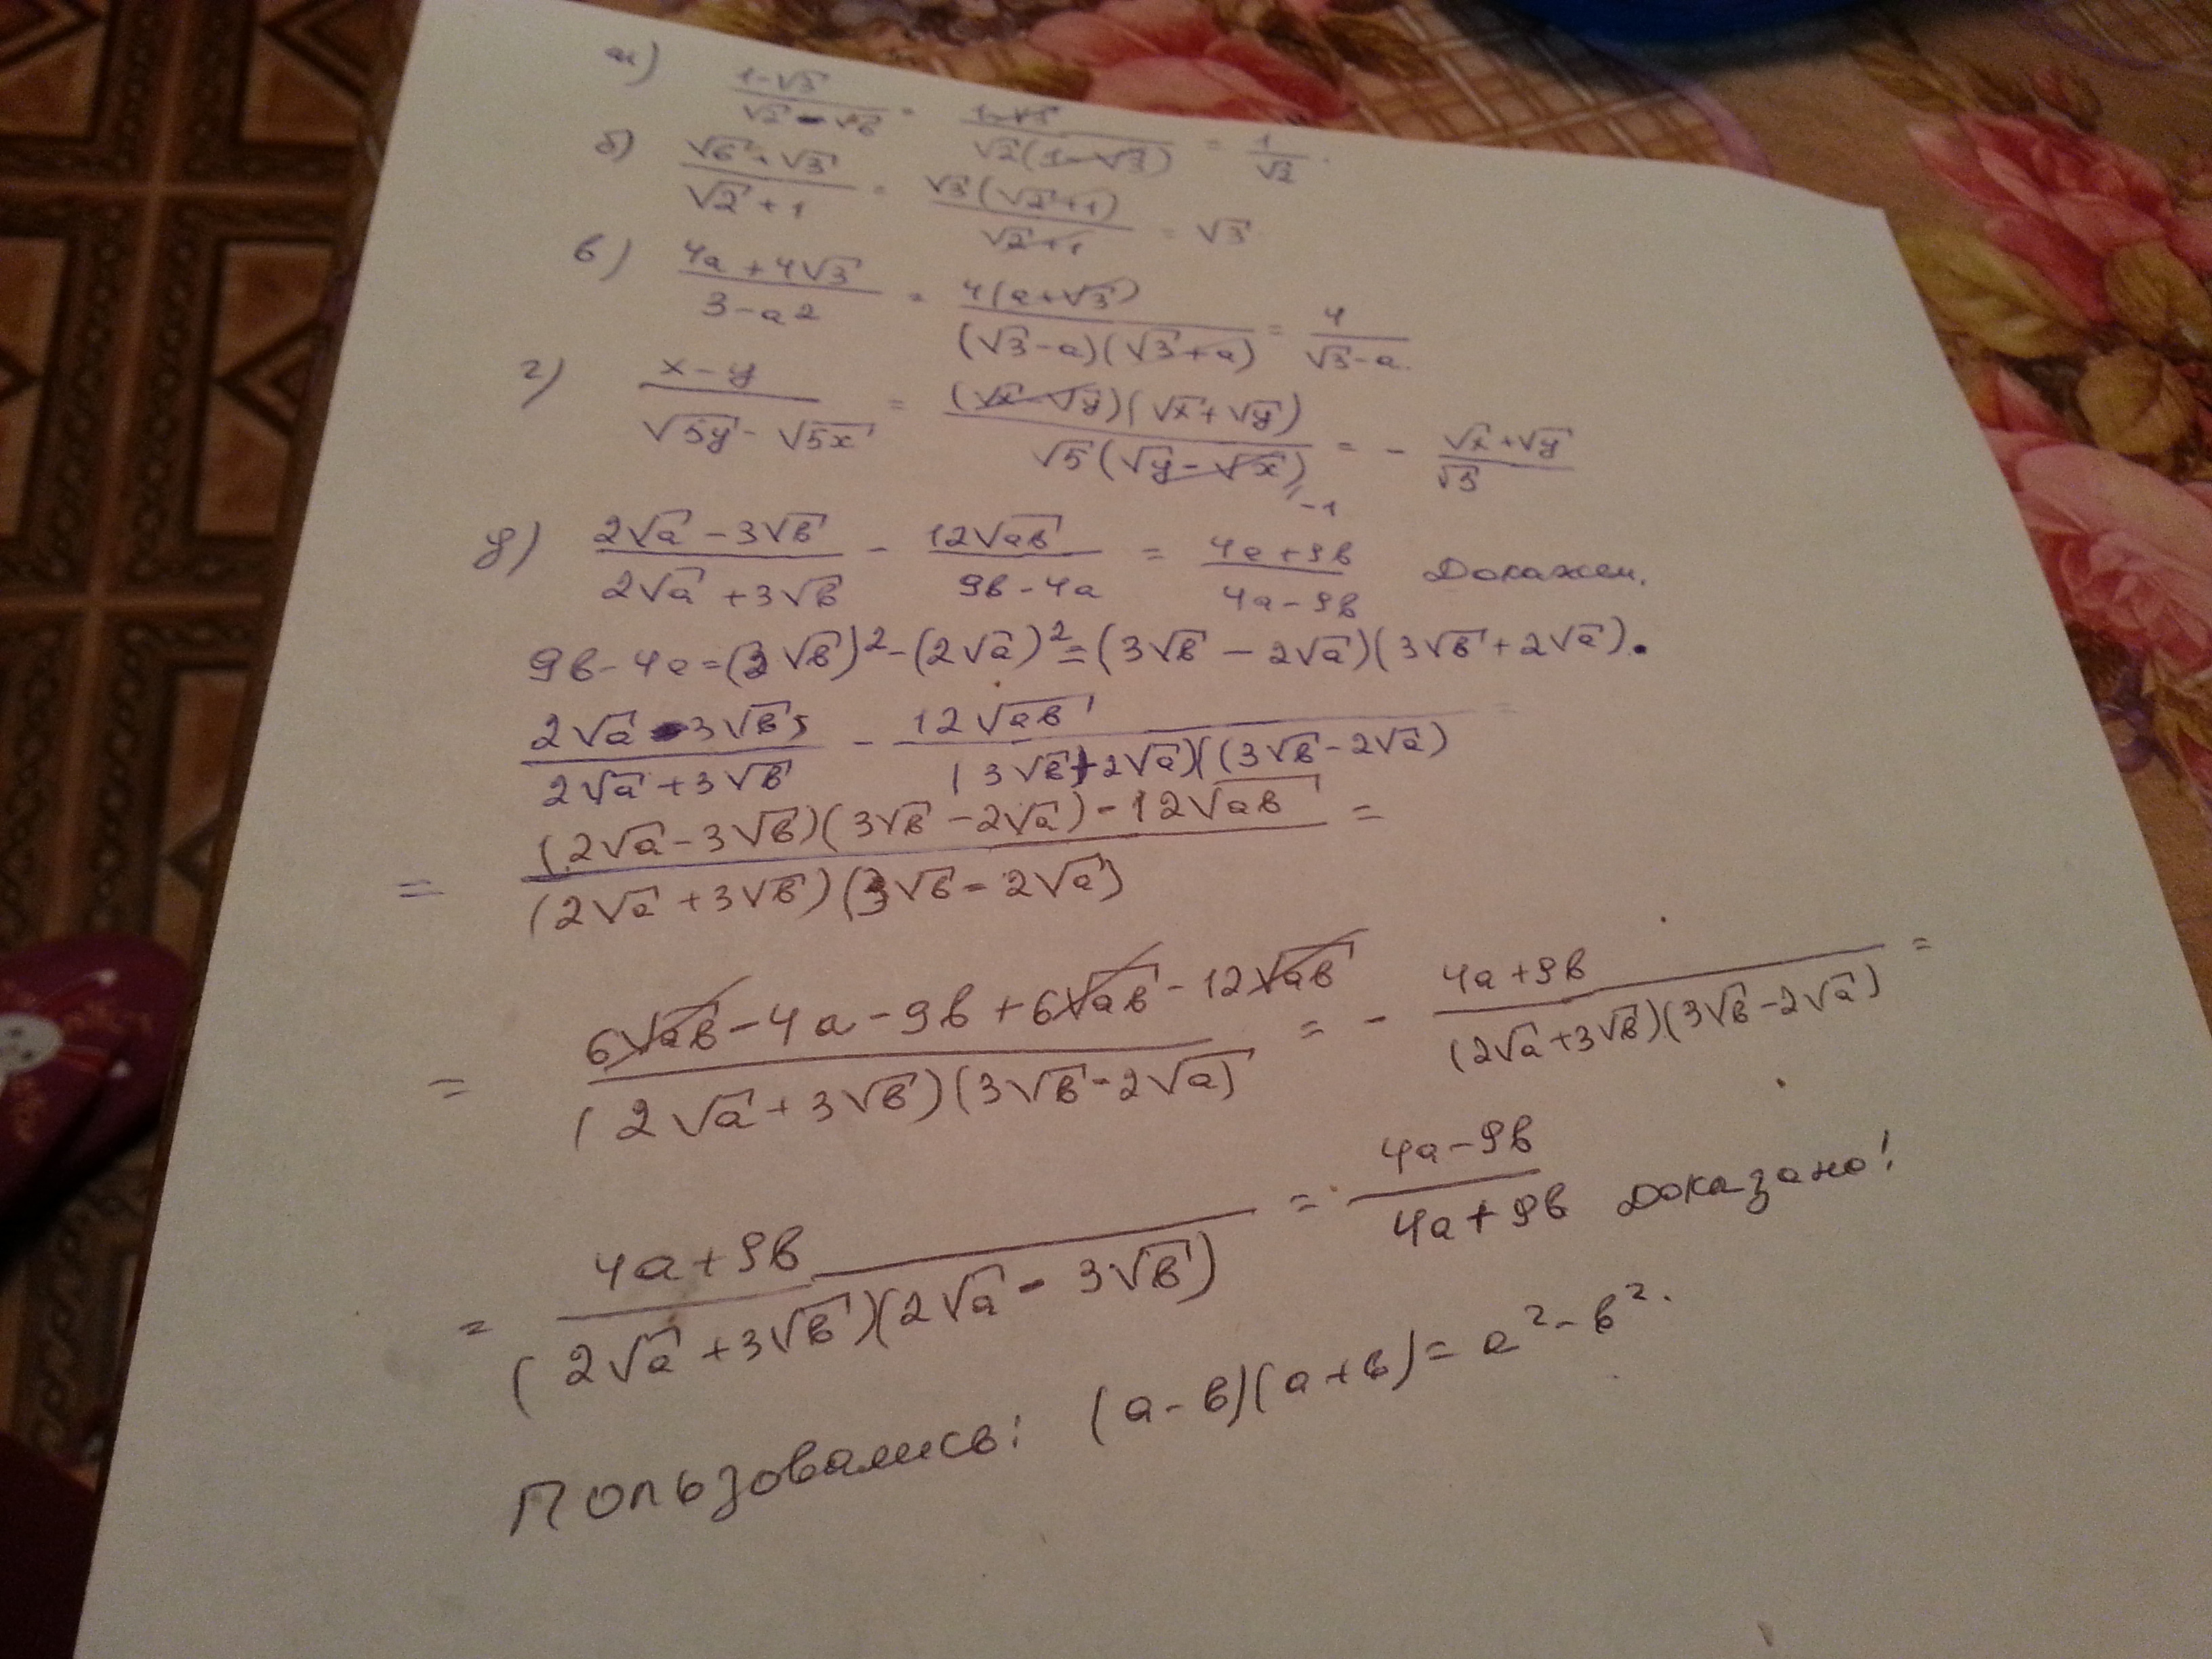 а) (1-√3)/(√2-√6) = (1-√3)/(√2(1-√3)) = 1/√2.
б) (√6+√3)/(√2+1) = (√3(√2+1))/(√2+1) = √3
в) (4a+4√3)/(3-a2) = (4(a+√3))/((√3-a)(√3+a)) = 4/(√3-a).
г) (x-y)/(√5y-√5x) = ((√x-√y)(√x+√y))/(√5(√y-√x)) -1 = - (√x+√y)/√5
д) (2√a-3√b)/(2√a+3√b) - (12√ab)/(9b-4a) = (4a+9b)/(4a-9b) Докажем.
9b-4a=(3√b)²-(2√a)²=(3√b-2√a)(3√b+2√a).
(2√a-3√b)/(2√a+3√b) - (12√ab)/((3√b+2√a)(3√b-2√a)) =
= ((2√a-3√b)(3√b-2√a)-12√ab)/((2√a+3√b)(3√b-2√a)) =
= (6√ab-4a-9b+6√ab-12√ab)/((2√a+3√b)(3√b-2√a)) = - (4a+9b)/((2√a+3√b)(3√b-2√a)) =
= (4a+9b)/((2√a+3√b)(2√a-3√b)) = (4a-9b)/(4a+9b) Доказано!
Пользовались: (a-b)(a+b)=a²-b².